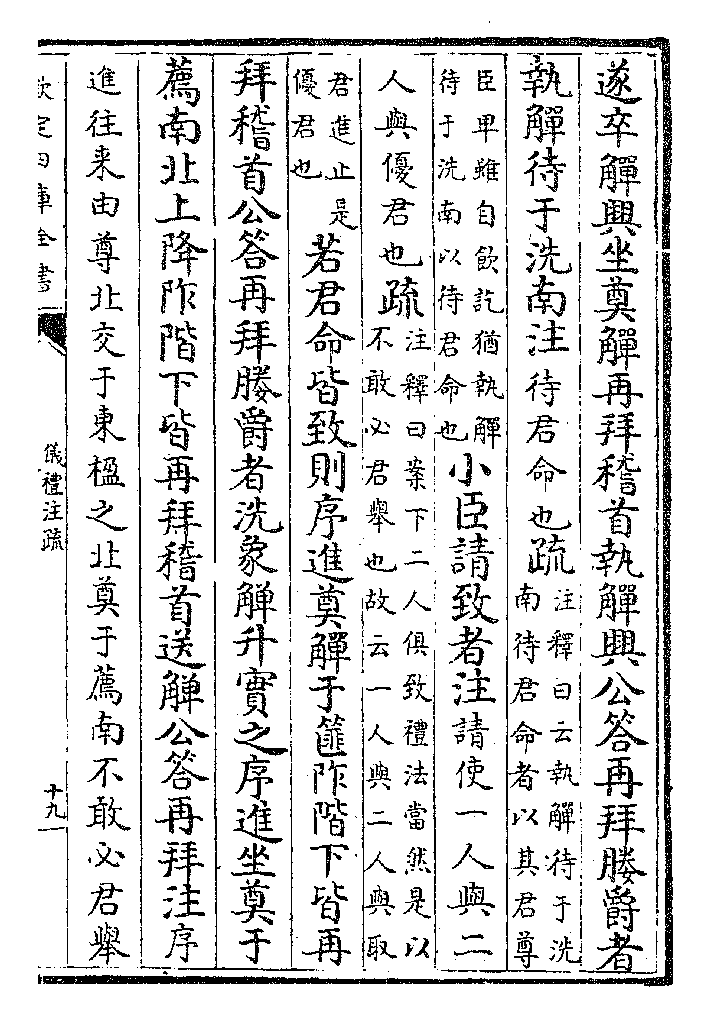 遂卒觶興坐奠觶再拜稽首執觶興公答再拜媵爵者
執觶待于洗南注待君命也疏
注釋曰云執觶待于洗
南待君命者以其君尊
臣卑雖自飲訖猶執觶
待于洗南以待君命也
小臣請致者注請使一人與二
人與優君也疏
注釋曰案下二人俱致禮法當然是以
不敢必君舉也故云一人與二人與取
君進止是
優君也
若君命皆致則序進奠觶于篚阼階下皆再
拜稽首公答再拜媵爵者洗象觶升實之序進坐奠于
薦南北上降阼階下皆再拜稽首送觶公答再拜注序
進往来由尊北交于東楹之北奠于薦南不敢必君舉
欽定四庫全書
儀禮注疏
十九